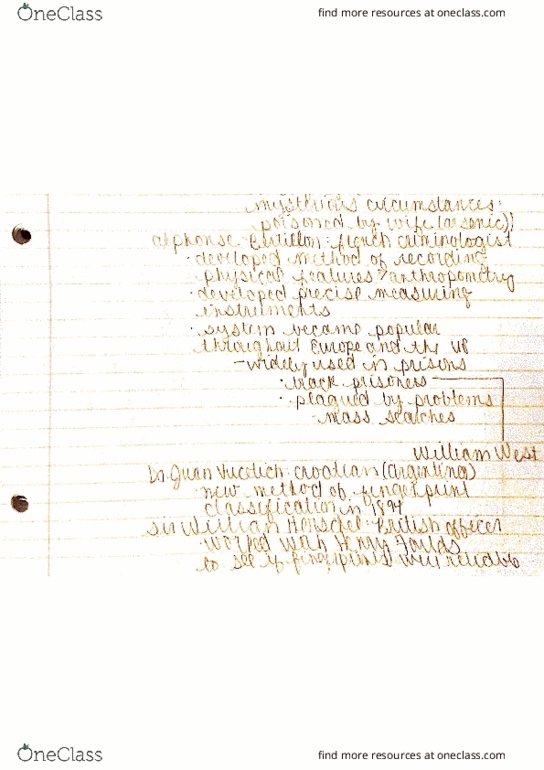 OneClass
find more resources at oneclass.com
mysterious circumstances:
poisoned by wife (arsenic)
alphonse Bertillon: french criminologist
· developed method of recording
physical features/anthropometry
· developed precise measuring
instruments
· system became popular
throughout Europe and the US
- widely used in prisons
· track prisoners
· plagued by problems
mass searches
William West
Dr. Juan Vucetich: croatian (argentina)
new method of fingerprint
classification in 1894
Sir William Herschel: British officer
worked with Henry Faulds
to see if fingerprints were reliable
OneClass
find more resources at oneclass.com